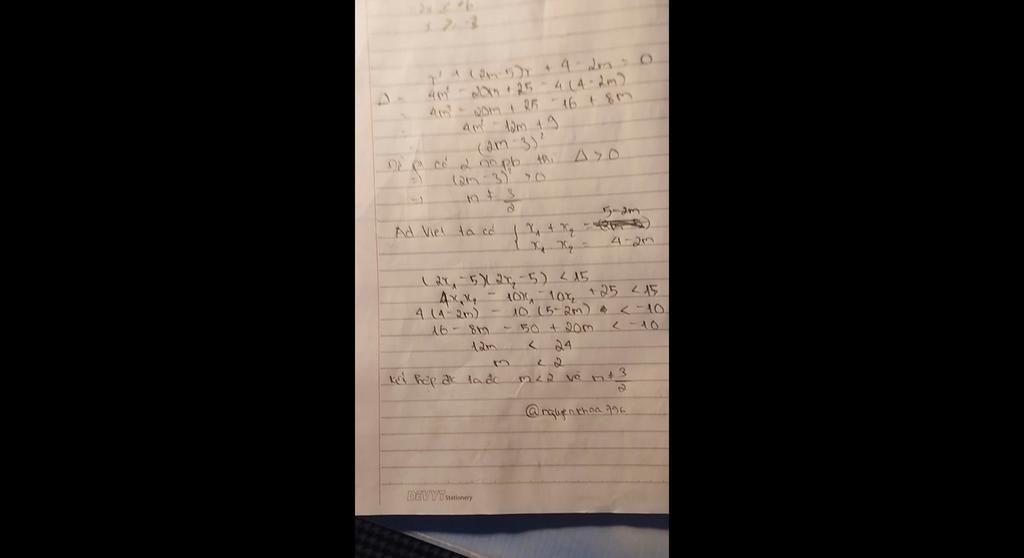 -2x ≤ +6
x ≥ -3
x² + (2m-5)x + 4 - 2m = 0
Δ = 4m² - 20m + 25 - 4(4-2m)
= 4m² - 20m + 25 - 16 + 8m
= 4m² - 12m + 9
= (2m-3)²
Để pt có 2 nopb thì Δ > 0
=) (2m-3)² > 0
=) m ≠ 3/2
Ad Viet ta có { x₁ + x₂ = 5-2m
x₁ x₂ = 4-2m
(2x₁-5)(2x₂-5) < 15
4x₁x₂ - 10x₁ - 10x₂ + 25 < 15
4(4-2m) - 10(5-2m) < -10
16 - 8m - 50 + 20m < -10
12m < 24
m < 2
Kết hợp đk ta đc m<2 và m ≠ 3/2
@nguyenkhoa796
DEVYT Stationery